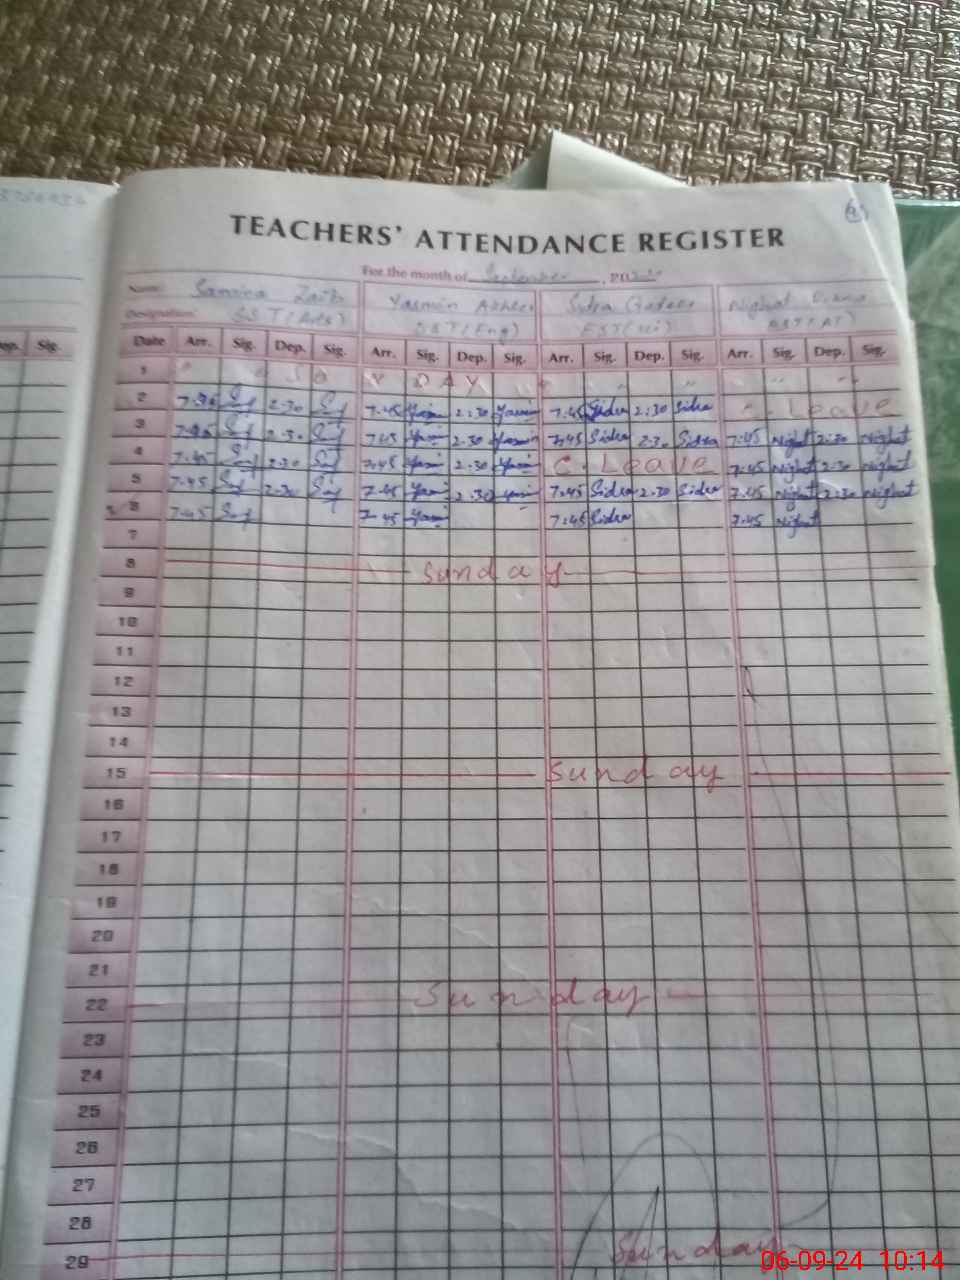 TEACHERS' ATTENDANCE REGISTER
For the month of September
Name Samina Zaib Yasmin Sidra Nighat
Designation SST (Arts) SST (Eng)
Date Arr. Sig. Dep. Sig. Arr. Sig. Dep. Sig. Arr. Sig. Dep. Sig. Arr. Sig. Dep. Sig. Sig.
1 S U N D A Y
2 2:30 7.45 2:30 7:45 Sidra 2:30 Sidra C. Leave
3 2:30 7.45 2:30 7:45 Sidra 2:30 Sidra 7:45 Nighat 2:30 Nighat
4 7.45 2:30 7.45 2:30 C. Leave 7.45 Nighat 2:30 Nighat
5 7.45 2:30 7.45 2:30 7.45 Sidra 2:30 Sidra 7.45 Nighat 2:30 Nighat
6 7.45 7.45 7.45 Sidra 7.45 Nighat
7
8 Sunday
9
10
11
12
13
14
15 Sunday
16
17
18
19
20
21
22 Sunday
23
24
25
26
27
28
29 Sunday
06-09-24 10:14